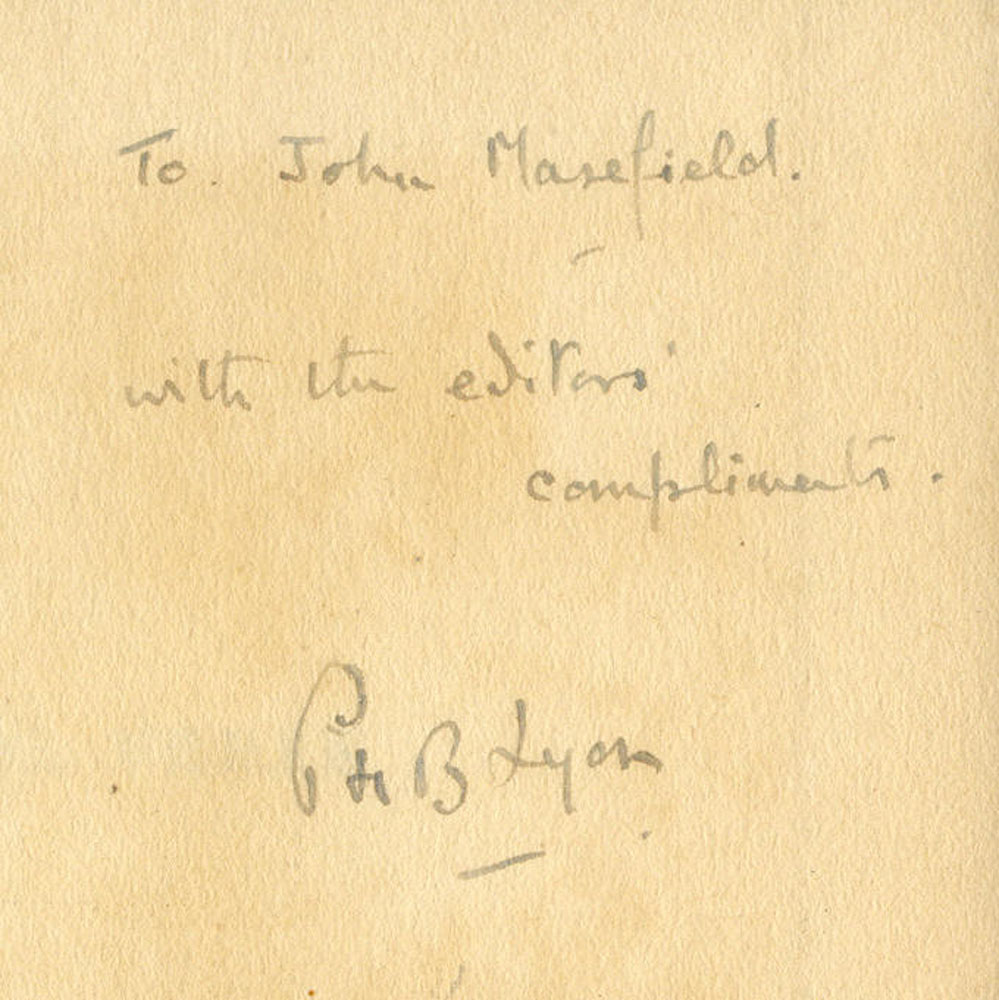 To. John Masefield.
with the editors'
compliments.
PHB Lyon